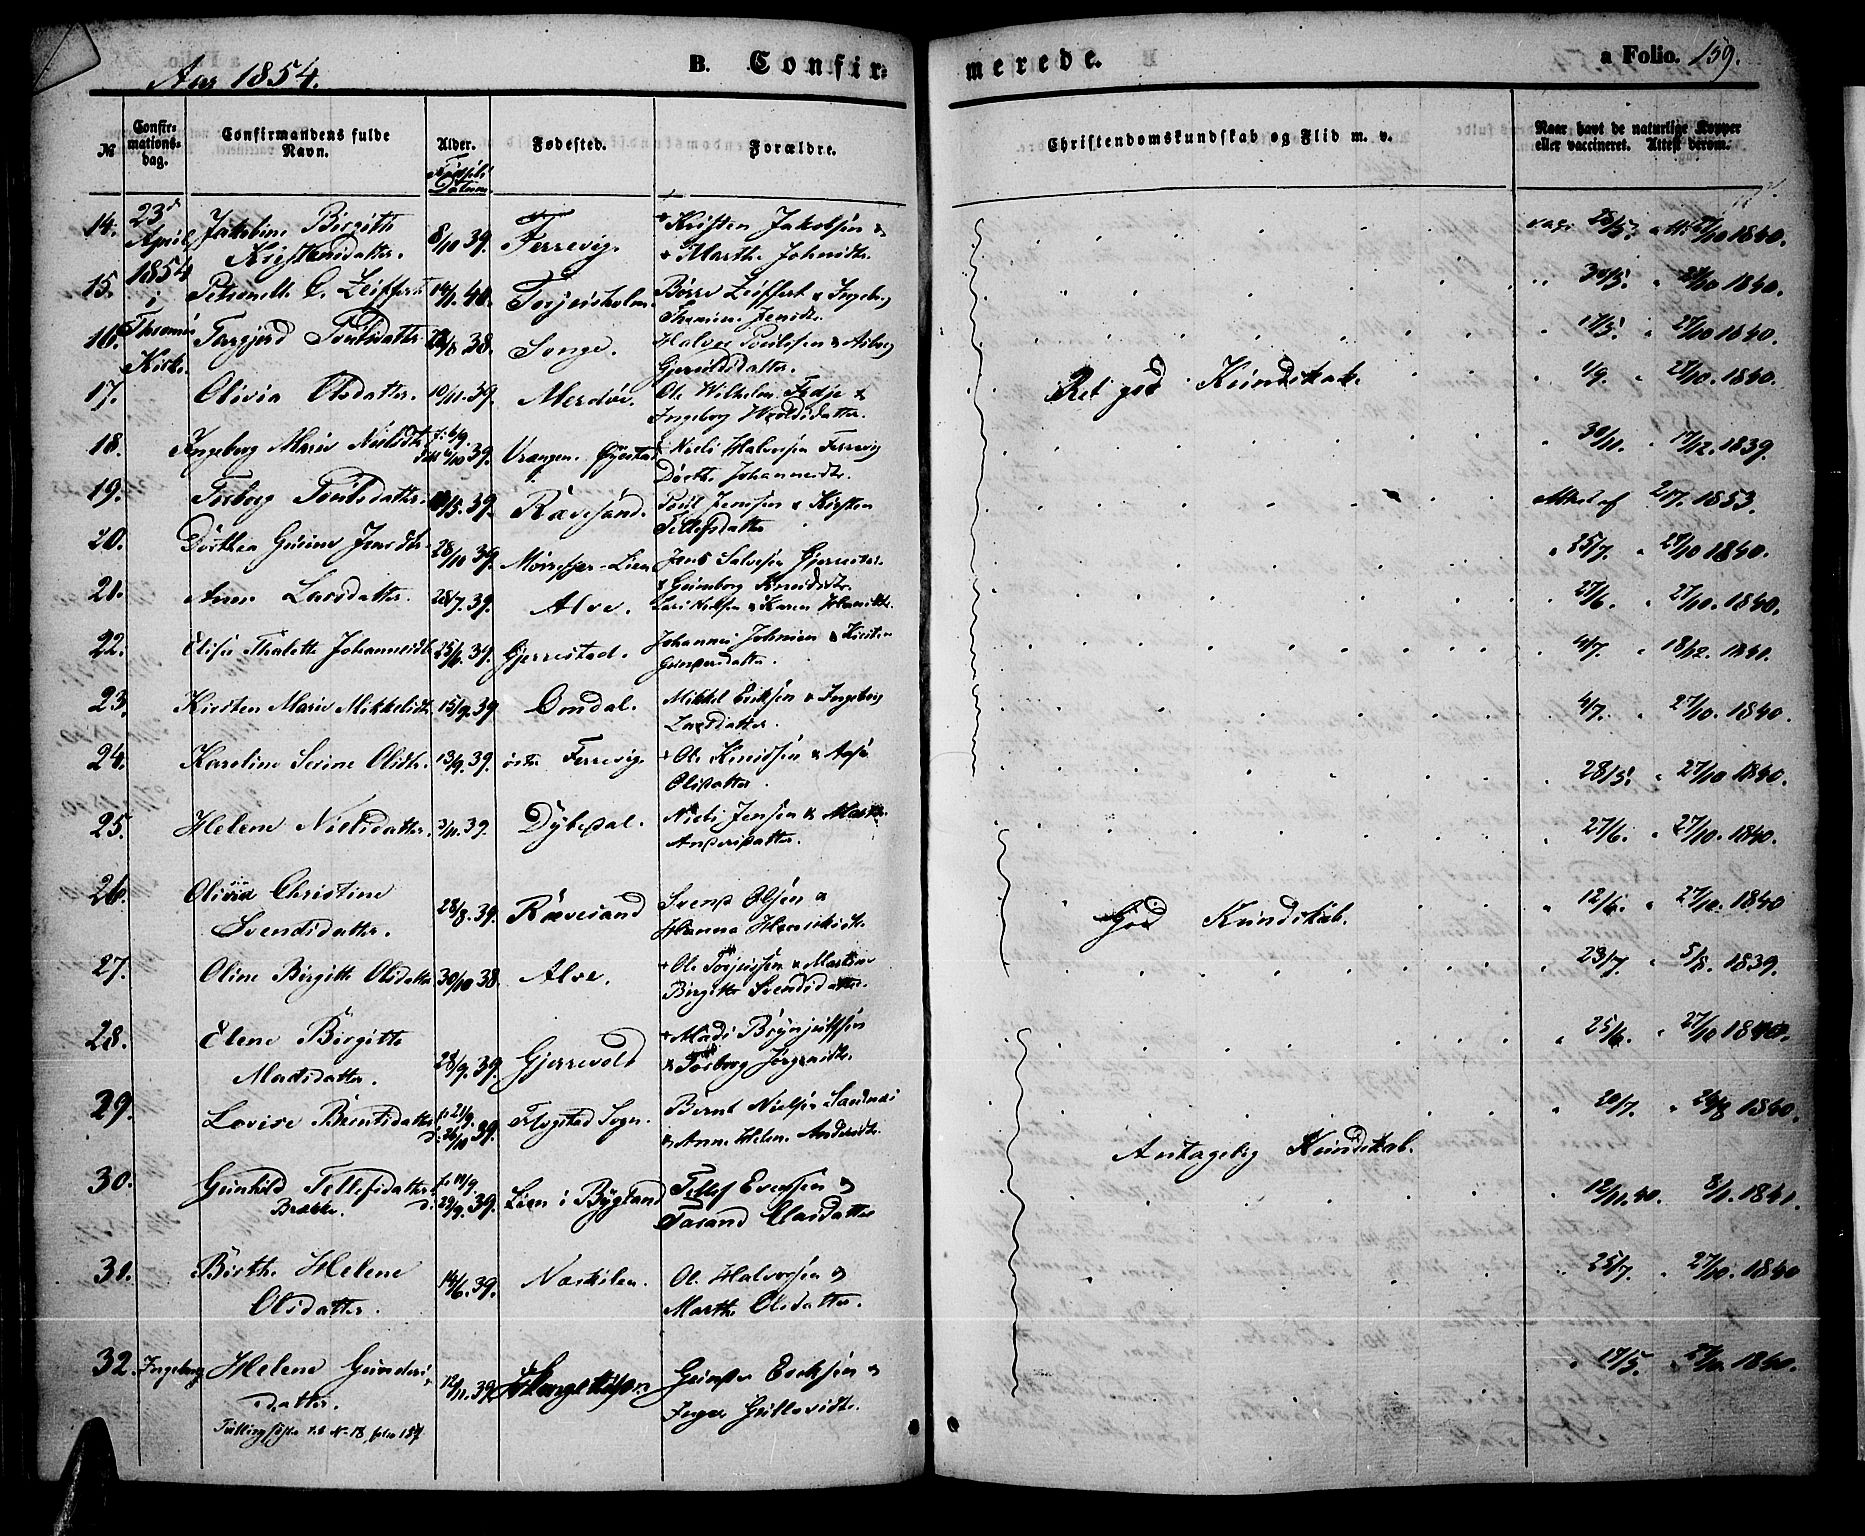 Aar 1854.
B. Confir=
merede.
a Folio. 159.
№
Confir-
mations-
dag.
Confirmandens fulde
Navn.
Alder.
Fødsels
Datum
Fødested.
Forældre.
Christendomskundskab og Flid m. v.
Naar havt de naturlige Kopper
eller vaccineret. Attest derom.
23de
April
1854
i
Tromø
Kirke
14. Jakobine Birgithe 8/10 39. Færrevig. + Kristen Jakobsen &
Kristensdatter. + Marthe Johnsdtr. 27/10 1840.
15. Petronelle C. Zeiffert 14/1 40. Torjusholm. Børre Zeiffert & Ingeborg
Jensdtr. 27/10 1840.
16. Torgjerd Poulsdatter 38. Songe. Halvor Poulssen & Asborg
Gjeruldsdatter. 17/5 " 27/10 1840.
17. Olivia Olsdatter. 10/11 39. Merdøe. Ole Wilhelm Fedje &
Ingeborg Woldsdatter. Ret god Kundskab. 1/9. " 27/10. 1840.
18. Ingeborg Marie Nielsdtr. f: 6/9. 39. Vrangen. Øyestad. Niels Halvorsen Færrevig
Dorthe Johannesdtr. 30/11. " 17/12. 1839.
19. Torborg Poulsdatter. 39. Rævesand. Poul Jenssen & Kirsten
Tellefsdatter Attest af 2/7. 1853.
20. Dorthea Gurine Jensdtr. 28/10 39. Mørefjær-Lien Jens Salvesen Gjerrestad
& Gunborg Knudsdtr. " 25/7. " 27/10 1840.
21. Anne Larsdatter. 28/7. 39. Alve. Lars Nielsen & Karen Johannesdtr. 27/6. " 27/10. 1840.
22. Elise Thalette Johannesdtr. 25/6. 39. Gjerrestad. Johannes Johnsen & Kirsten
Gundersdatter. 4/7. " 18/12. 1841.
23. Kirsten Marie Mikkelsdtr. 15/9. 39 Omdal. Mikkel Eriksen & Ingeborg
Larsdatter. 4/7. " 27/10. 1840.
24. Karoline Serine Olsdtr. 13/9. 39. østre Færrevig. + Ole Knudsen & Aase
Olsdatter. 28/5. " 27/10 1840.
25. Helene Nielsdatter. 3/11. 39. Dybedal. Niels Jensen & Marthe
Andersdatter. 27/6. " 27/10. 1840.
26. Olivia Christine
Svendsdatter. 28/8. 39. Rævesand Svend Olsen &
Hanna Henriksdtr. God Kundskab. " 12/6. " 27/10. 1840
27. Oline Birgithe Olsdatter 30/10 38. Alve. + Ole Torjussen & Martine
Birgitte Svendsdatter. " 23/7. " 5/8. 1839.
28. Elene Birgitte
Madsdatter. 28/9. 39. Gjerrevold + Mads Brynjulfsen
& Torborg Jørgensdtr. 25/6. " 27/10 1840.
29. Lovise Berntsdatter f: 21/9. d: 26/10 39. Flogstad Sogn. Bernt Nielsen Sandnæs
& Anne Helene Andersdtr. Antagelig Kundskab. 20/7. " 26/8 1840.
30. Gunhild Tellefsdatter
Brække. f: 14/9. d: 29/9. 39. Lien i Bygland Tellef Evensen &
Tarand Olasdatter 12/11. 40. 8/1. 1841.
31. Birthe Helene
Olsdatter. 14/6. 39. Næskilen. Ole Halvorsen &
Marthe Olsdatter. 25/7. " 27/10. 1840
32. Ingeborg Helene Gunders-
datter. 12/11. 39. Gunder Eriksen &
Inger Gullovsdtr. " 17/5. " 27/10. 1840.
Tvillingsøster til No 18, folio 157